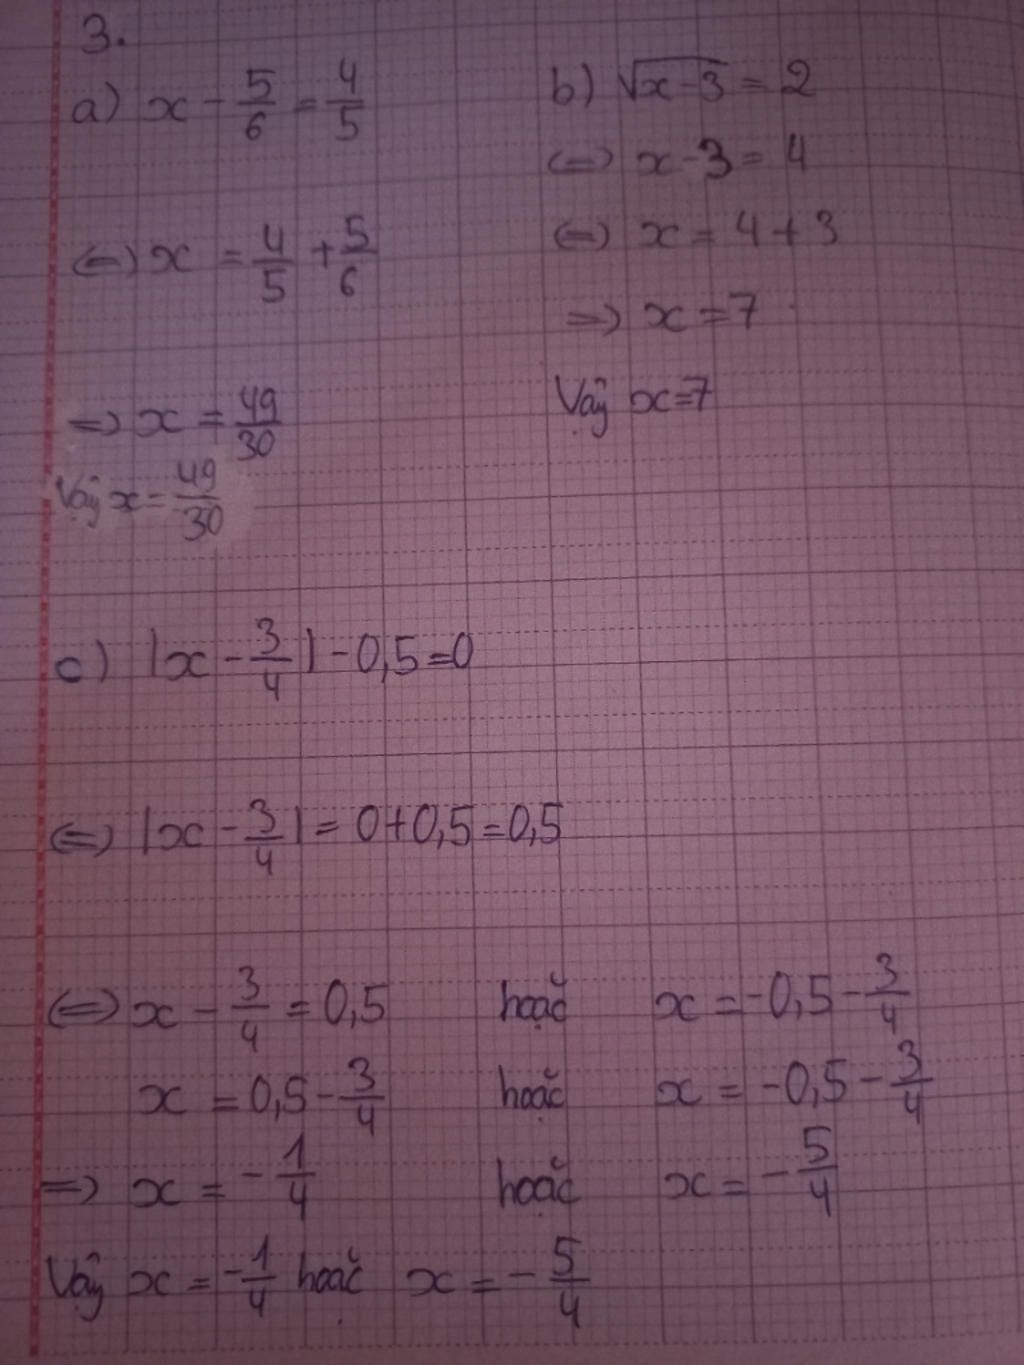 3.
a) x - 5/6 = 4/5
(=) x = 4/5 + 5/6
=> x = 49/30
Vậy x = 49/30
b) √(x-3) = 2
(=) x-3 = 4
(=) x = 4+3
=> x = 7
Vậy x=7
c) |x - 3/4| - 0,5 = 0
(=) |x - 3/4| = 0+0,5 = 0,5
(=) x - 3/4 = 0,5 hoặc x = -0,5 - 3/4
x = 0,5 - 3/4 hoặc x = -0,5 - 3/4
=> x = -1/4 hoặc x = -5/4
Vậy x = -1/4 hoặc x = -5/4